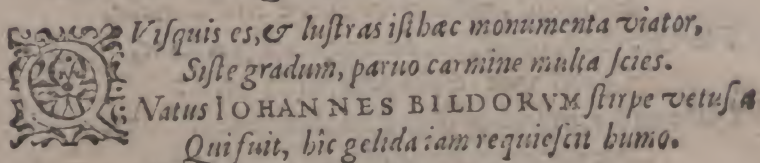 QViſquis es, & luſtras iſthæc monumenta viator,
Siſte gradum, paruo carmine multa ſcies.
Natus IOHANNES BILDORVM ſtirpe vetuſta
Qui fuit, hîc gelida iam requieſcit humo.